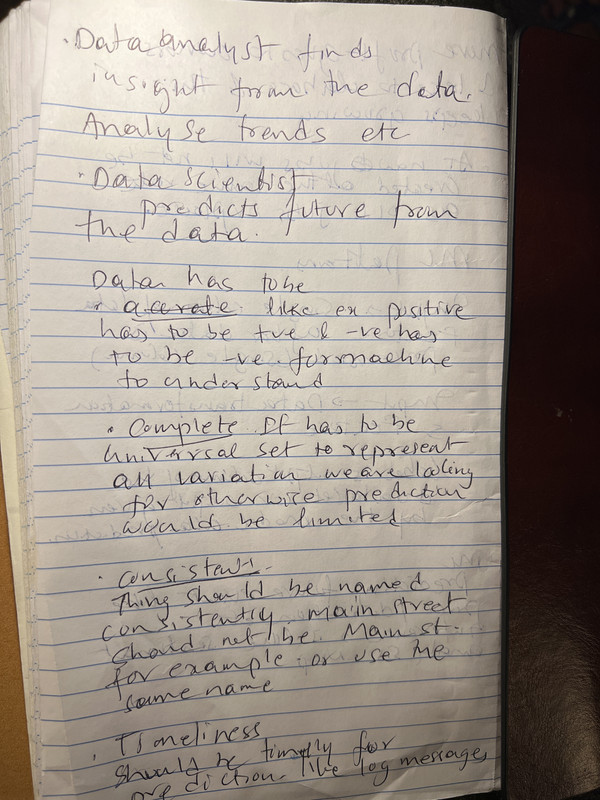 · Data analyst finds
insight from the data.
Analyse trends etc
· Data Scientist
predicts future from
the data.
Data has to be
· accurate like ex positive
has to be +ve & -ve has
to be -ve for machine
to understand
· Complete If has to be
universal set to represent
all variation we are looking
for otherwise prediction
would be limited
· Consistent
Thing should be named
consistently main street
should not be Main st.
for example or use the
same name
· Timeliness
should be timely for
prediction like log messages